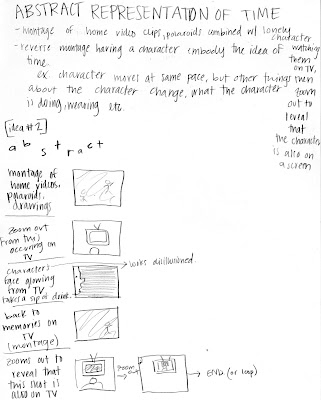 ABSTRACT REPRESENTATION OF TIME
- montage of home video clips, polaroids combined w/ lonely character watching them on TV, then zoom out to reveal that the character is also on a screen
- reverse montage having a character embody the idea of time.
ex character moves at same pace, but other things about the character change, what the character is doing, wearing etc.
[idea #2]
a b s t r a c t
montage of
home videos,
polaroids,
drawings
zoom out
from this
occuring on
TV
characters
face glowing
from TV.
takes a sip of drink.
looks disillusioned.
back to
memories on
TV
(montage)
zooms out to
reveal that
this shot is
also on TV
zoom
→ END. (or loop)